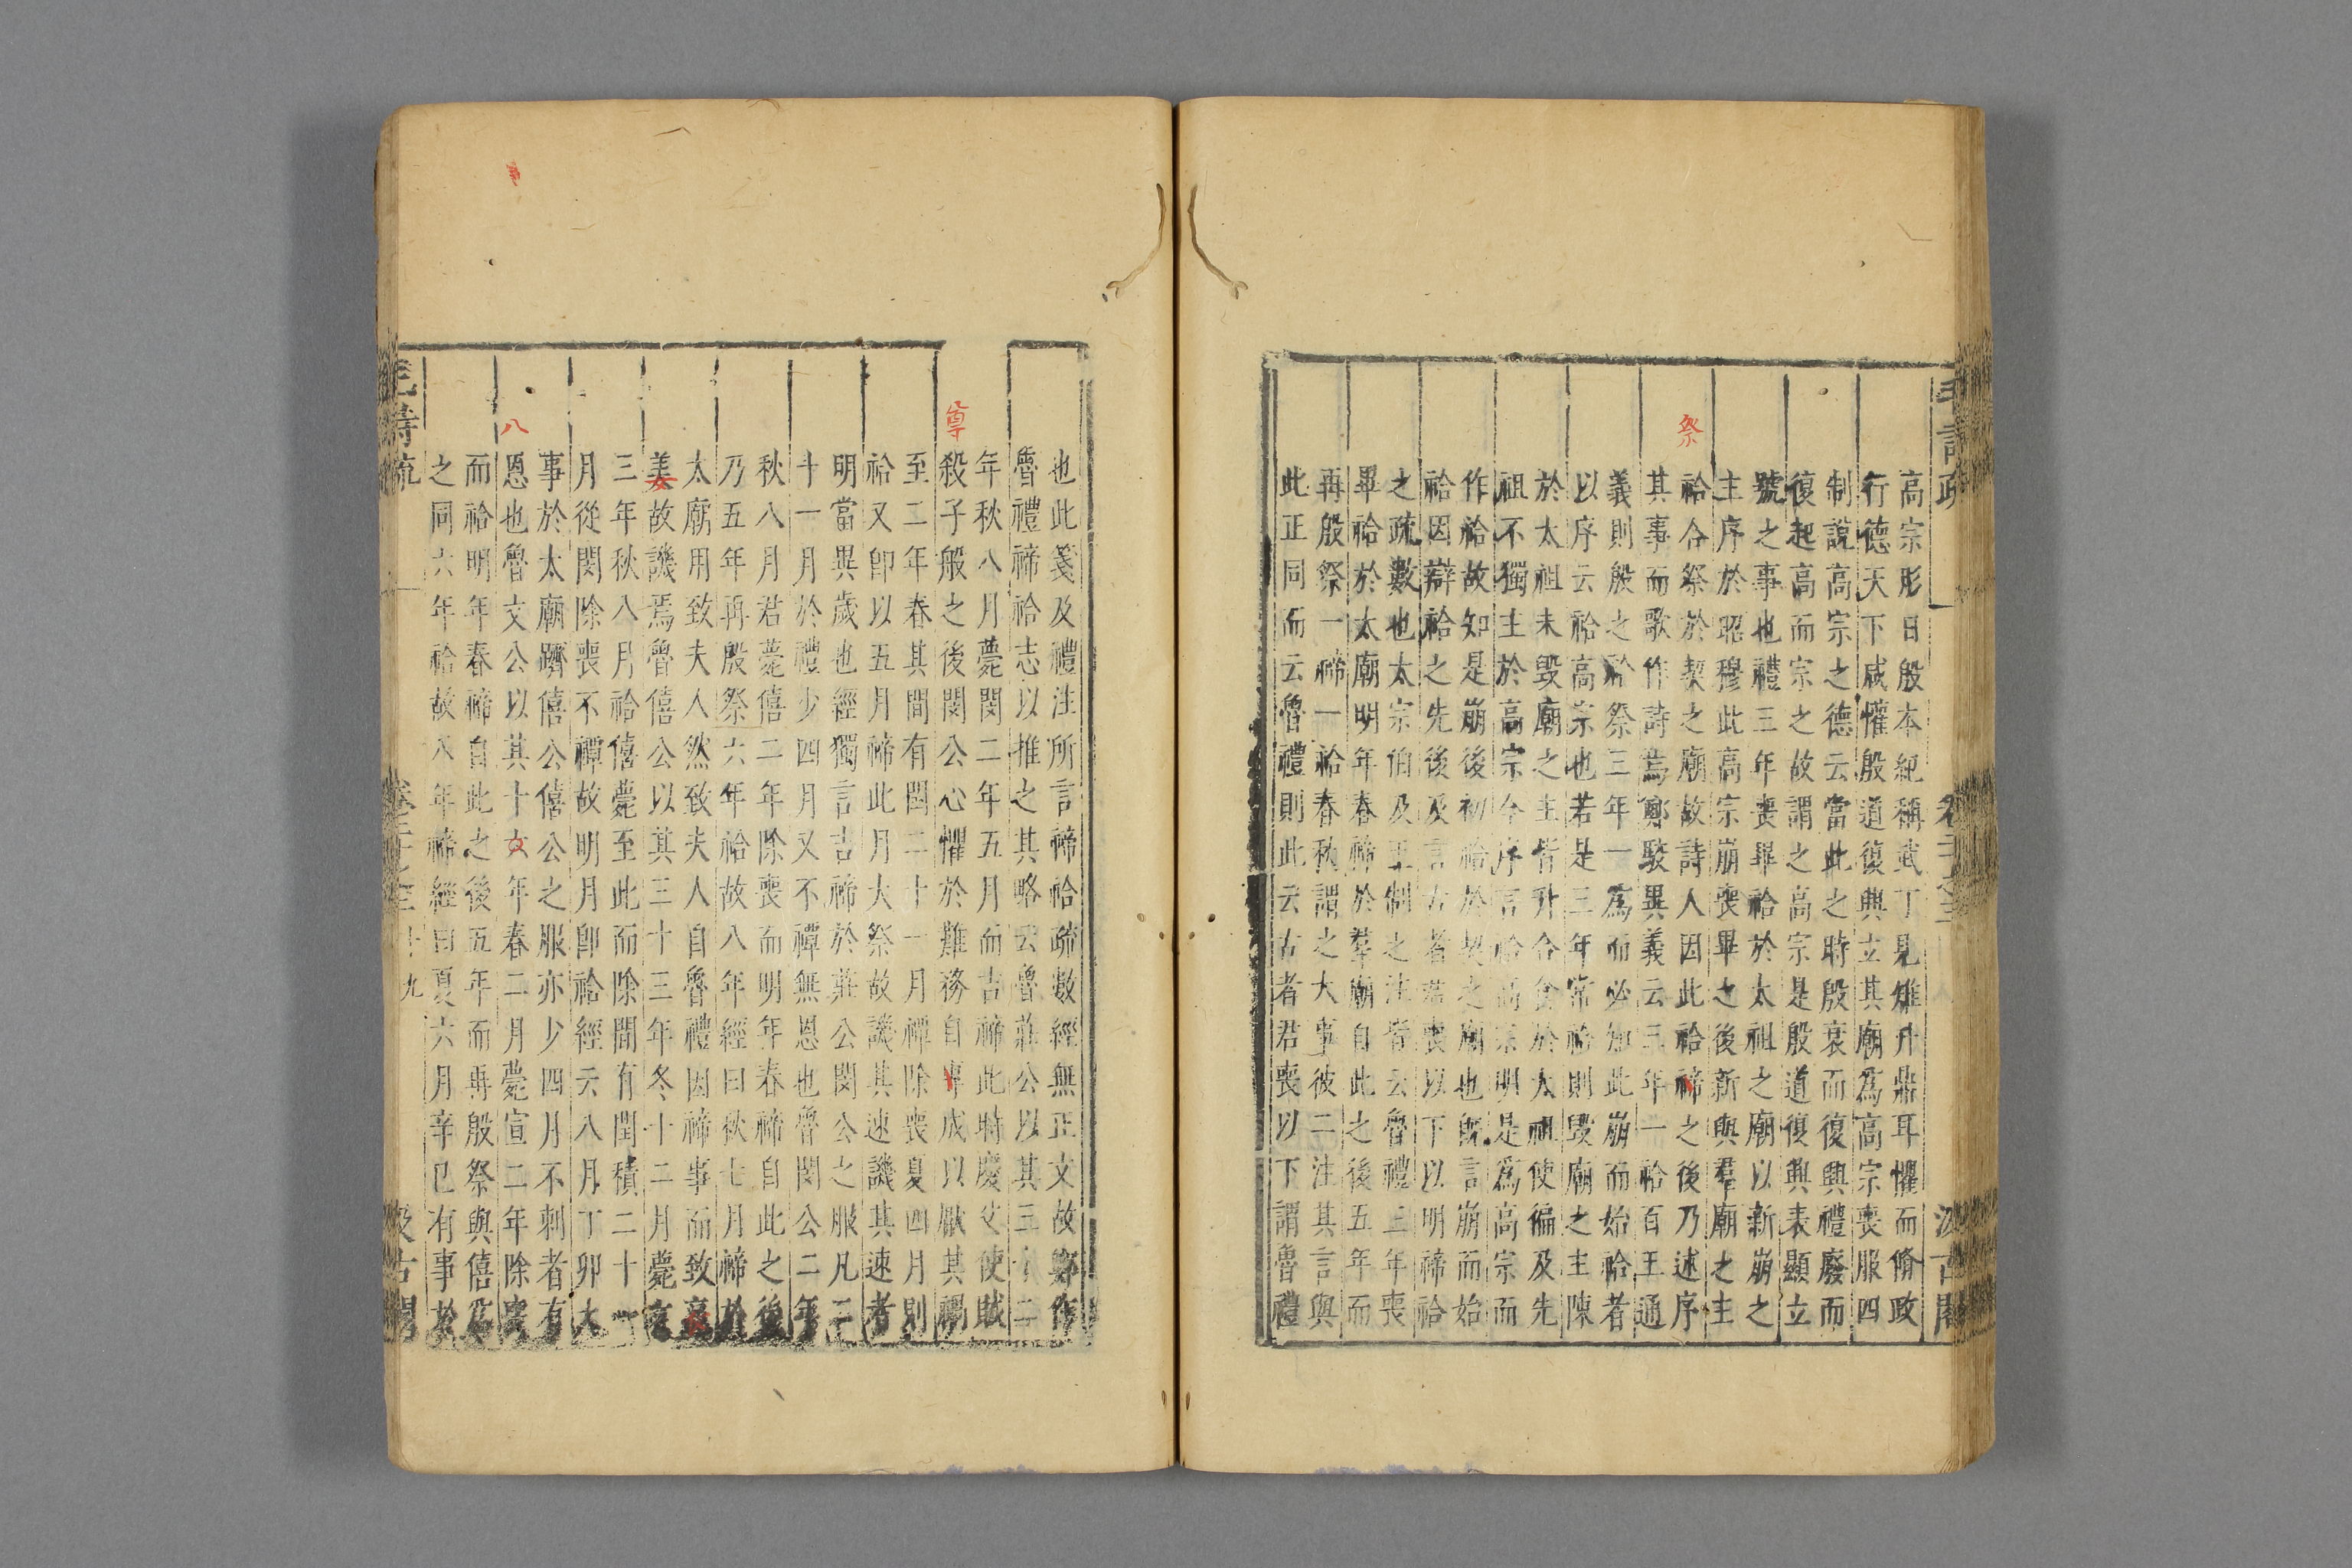 毛詩疏
汲古閣
高宗肜日殷本紀稱武丁見雉升鼎耳懼而脩政
行德天下咸懼殷道復興立其廟爲高宗喪服四
制說高宗之德云當此之時殷衰而復興禮廢而
復起高而宗之故謂之高宗是殷道復興表顯立
號之事也禮三年喪畢祫於太祖之廟以新崩之
主序於昭穆此高宗崩喪畢之後新與羣廟之主
祭
祫合祭於契之廟故詩人因此祫禘之後乃述序
其事而歌作詩焉鄭駁異義云三年一祫百王通
義則殷之祫祭三年一爲而必如此崩而始祫者
以序云祫高宗也若是三年常祫則毀廟之主陳
於太祖未毀廟之主皆升合食於太祖使徧及先
祖不獨主於高宗今序言祫高宗明是爲高宗而
作祫故知是崩後初祫於契之廟也旣言崩而始
祫因辯祫之先後及言古者君喪以下以明禘祫
之疏數也太宗伯及王制之注皆云魯禮三年喪
畢祫於太廟明年春禘於羣廟自此之後五年而
再殷祭一禘一祫春秋謂之大事彼二注其言與
此正同而云魯禮則此云古者君喪以下謂魯禮
也此箋及禮注所言禘祫疏數經無正文故鄭作
魯禮禘祫志以推之其略云魯莊公以其三十二
年秋八月薨閔二年五月而吉禘此時慶父使賊
尊
殺子般之後閔公心懼於難務自尊成以厭其禍
至二年春其間有閏二十一月禫除喪夏四月則
祫又卽以五月禘此月大祭故譏其速譏其速者
明當異歲也經獨言吉禘於莊公閔公之服凡二
十一月於禮少四月又不禫無恩也魯閔公二年
秋八月君薨僖二年除喪而明年春禘自此之後
乃五年再殷祭六年祫故八年經曰秋七月禘於
太廟用致夫人然致夫人自魯禮因禘事而致哀
姜故譏焉魯僖公以其三十三年冬十二月薨文
三年秋八月祫僖薨至此而除間有閏積二十一
月從閔除喪不禫故明月卽祫經云八月丁卯大
事於太廟躋僖公僖公之服亦少四月不刺者有
八
恩也魯文公以其十六年春二月薨宣二年除喪
而祫明年春禘自此之後五年而再殷祭與僖爲
之同六年祫故八年禘經曰夏六月辛巳有事於
毛詩疏
十九
汲古閣